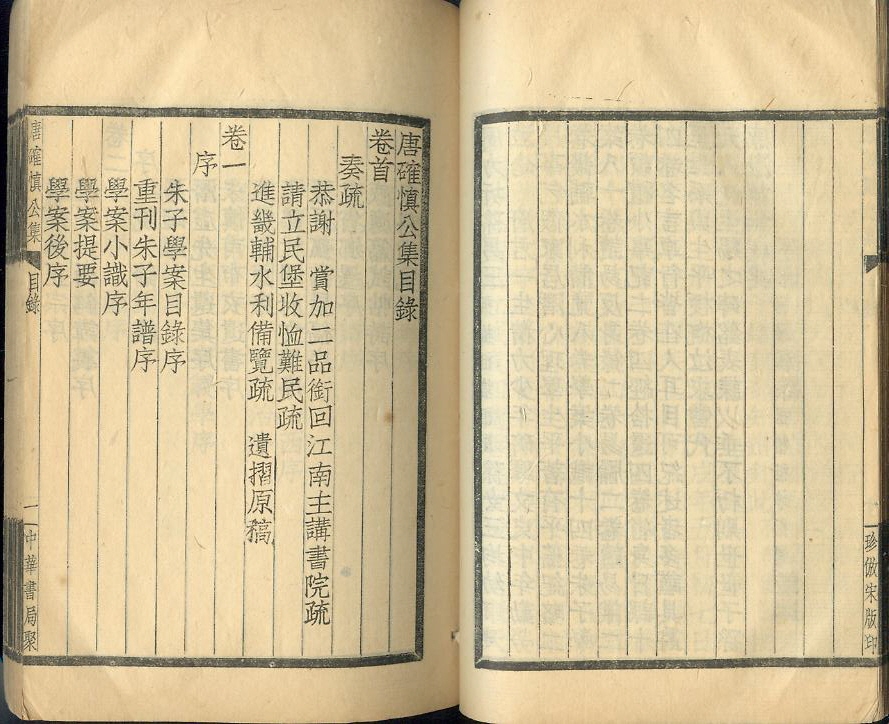 珍倣宋版印
唐確慎公集目錄
卷首
奏疏
恭謝　賞加二品銜回江南主講書院疏
請立民堡收恤難民疏
進畿輔水利備覽疏　遺摺原稿
卷一
序
朱子學案目錄序
重刊朱子年譜序
學案小識序
學案提要
學案後序
唐確慎公集
目錄
一
中華書局聚